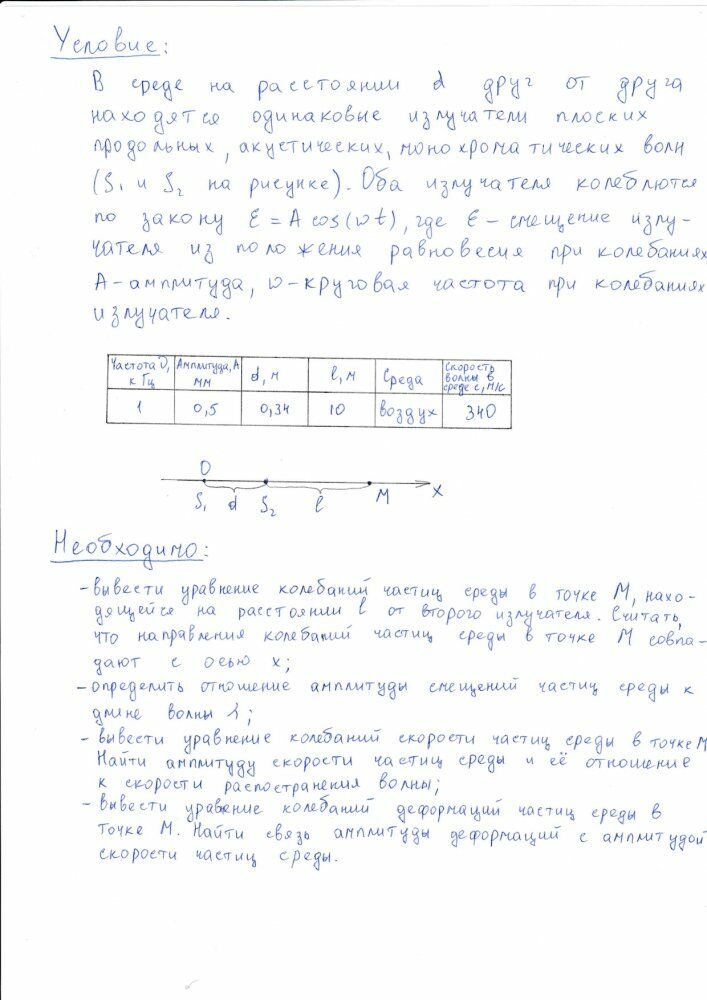 Условие:
В среде на расстоянии d друг от друга
находятся одинаковые излучатели плоских
продольных, акустических, монохроматических волн
(S₁ и S₂ на рисунке). Оба излучателя колеблются
по закону ξ = A cos(ωt), где ξ – смещение излу-
чателя из положения равновесия при колебаниях
A – амплитуда, ω – круговая частота при колебаниях
излучателя.
Частота ν, кГц | Амплитуда, A мм | d, м | l, м | Среда | Скорость волны в среде c, м/с
1 | 0,5 | 0,34 | 10 | воздух | 340
O
S₁ d S₂ l M x
Необходимо:
- вывести уравнение колебаний частиц среды в точке M, нахо-
дящейся на расстоянии l от второго излучателя. Считать,
что направления колебаний частиц среды в точке M совпа-
дают с осью x;
- определить отношение амплитуды смещений частиц среды к
длине волны λ;
- вывести уравнение колебаний скорости частиц среды в точке M
Найти амплитуду скорости частиц среды и её отношение
к скорости распостранения волны;
- вывести уравение колебаний деформаций частиц среды в
точке M. Найти связь амплитуды деформаций с амплитудой
скорости частиц среды.